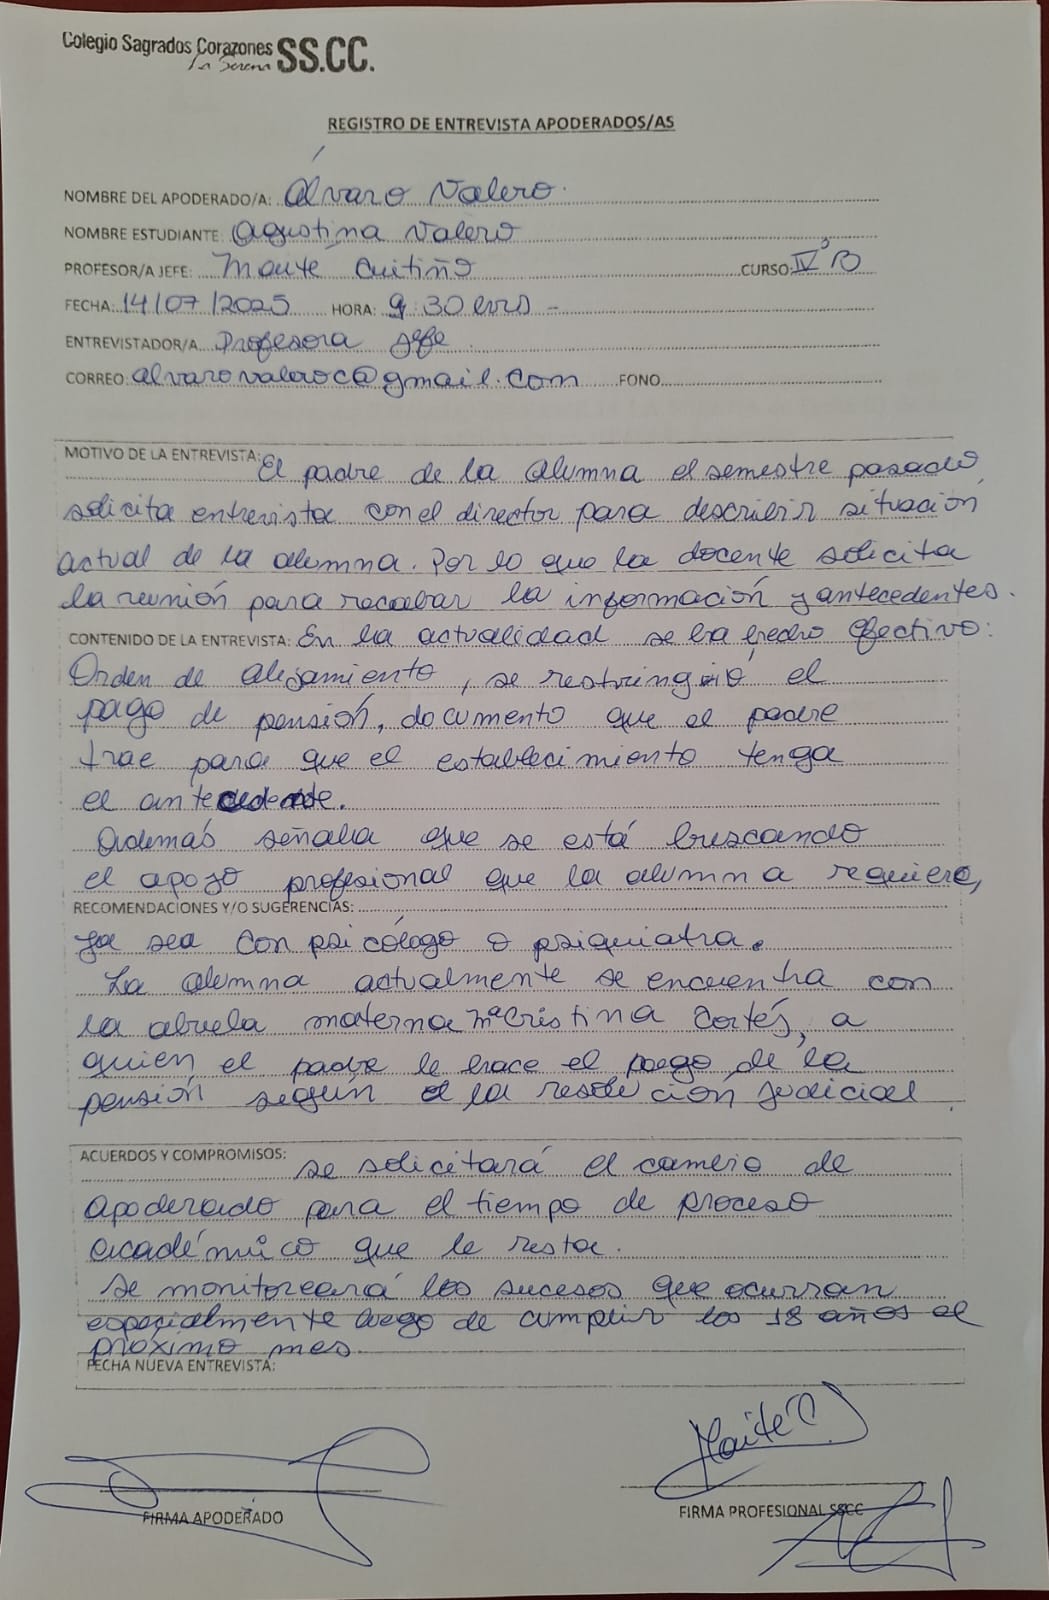 Colegio Sagrados Corazones SS.CC.
La Serena
REGISTRO DE ENTREVISTA APODERADOS/AS
NOMBRE DEL APODERADO/A: Álvaro Valero.
NOMBRE ESTUDIANTE: Agustina Valero
PROFESOR/A JEFE: Maité Cuitiño CURSO: IV°B
FECHA: 14/07/2025 HORA: 9:30 hrs -
ENTREVISTADOR/A Profesora Jefe
CORREO: alvarovaleroc@gmail.com FONO
MOTIVO DE LA ENTREVISTA: El padre de la alumna el semestre pasado
solicita entrevista con el director para describir situación
actual de la alumna. Por lo que la docente solicita
la reunión para recabar la información y antecedentes.
CONTENIDO DE LA ENTREVISTA: En la actualidad se ha hecho efectivo:
Orden de alejamiento, se restringió el
pago de pensión, documento que el padre
trae para que el establecimiento tenga
el antecedente.
Además señala que se está buscando
el apoyo profesional que la alumna requiere,
RECOMENDACIONES Y/O SUGERENCIAS:
ya sea con psicólogo o psiquiatra.
La alumna actualmente se encuentra con
la abuela materna Mª Cristina Cortés, a
quien el padre le hace el pago de la
pensión según la resolución judicial
ACUERDOS Y COMPROMISOS: se solicitará el cambio de
apoderado para el tiempo de proceso
académico que le resta.
Se monitoreará los sucesos que ocurran
especialmente luego de cumplir los 18 años el
próximo mes.
FECHA NUEVA ENTREVISTA:
Maité C
FIRMA APODERADO FIRMA PROFESIONAL SSCC